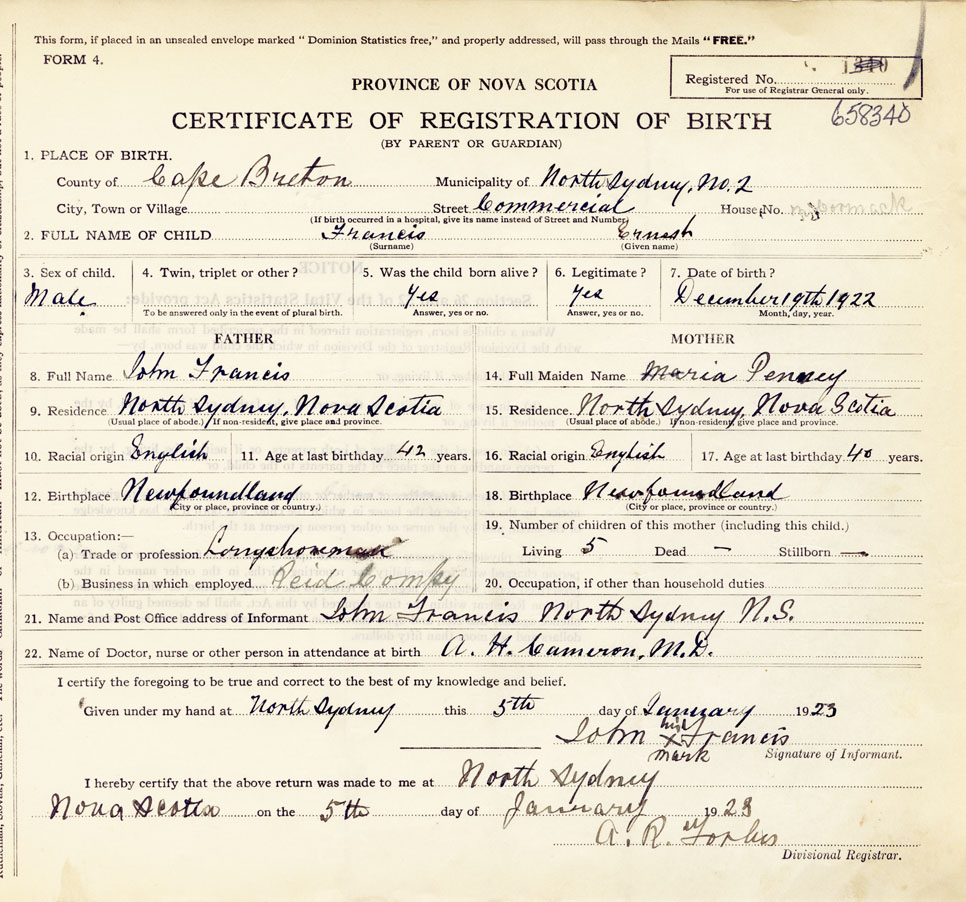 This form, if placed in an unsealed envelope marked "Dominion Statistics free," and properly addressed, will pass through the Mails "FREE."
FORM 4.
PROVINCE OF NOVA SCOTIA
Registered No. 1340
For use of Registrar General only.
658340
CERTIFICATE OF REGISTRATION OF BIRTH
(BY PARENT OR GUARDIAN)
1. PLACE OF BIRTH.
County of Cape Breton Municipality of North Sydney, No. 2
City, Town or Village Street Commercial House No.
(If birth occurred in a hospital, give its name instead of Street and Number)
2. FULL NAME OF CHILD Francis Ernest
(Surname) (Given name)
3. Sex of child. 4. Twin, triplet or other? 5. Was the child born alive? 6. Legitimate? 7. Date of birth?
Male Yes Yes December 19th 1922
To be answered only in the event of plural birth. Answer, yes or no. Answer, yes or no. Month, day, year.
FATHER MOTHER
8. Full Name John Francis 14. Full Maiden Name Maria Penney
9. Residence North Sydney, Nova Scotia 15. Residence. North Sydney, Nova Scotia
(Usual place of abode.) If non-resident, give place and province. (Usual place of abode.) If non-resident, give place and province.
10. Racial origin English 11. Age at last birthday 42 years. 16. Racial origin English 17. Age at last birthday 40 years.
12. Birthplace Newfoundland 18. Birthplace Newfoundland
(City or place, province or country.) (City or place, province or country.)
13. Occupation:— 19. Number of children of this mother (including this child.)
(a) Trade or profession Longshoreman Living 5 Dead — Stillborn —
(b) Business in which employed Reid Compy 20. Occupation, if other than household duties
21. Name and Post Office address of Informant John Francis North Sydney N.S.
22. Name of Doctor, nurse or other person in attendance at birth A. H. Cameron, M.D.
I certify the foregoing to be true and correct to the best of my knowledge and belief.
Given under my hand at North Sydney this 5th day of January 1923
John his X mark Francis
Signature of Informant.
I hereby certify that the above return was made to me at North Sydney
Nova Scotia on the 5th day of January 1923
A. R. Forbes
Divisional Registrar.